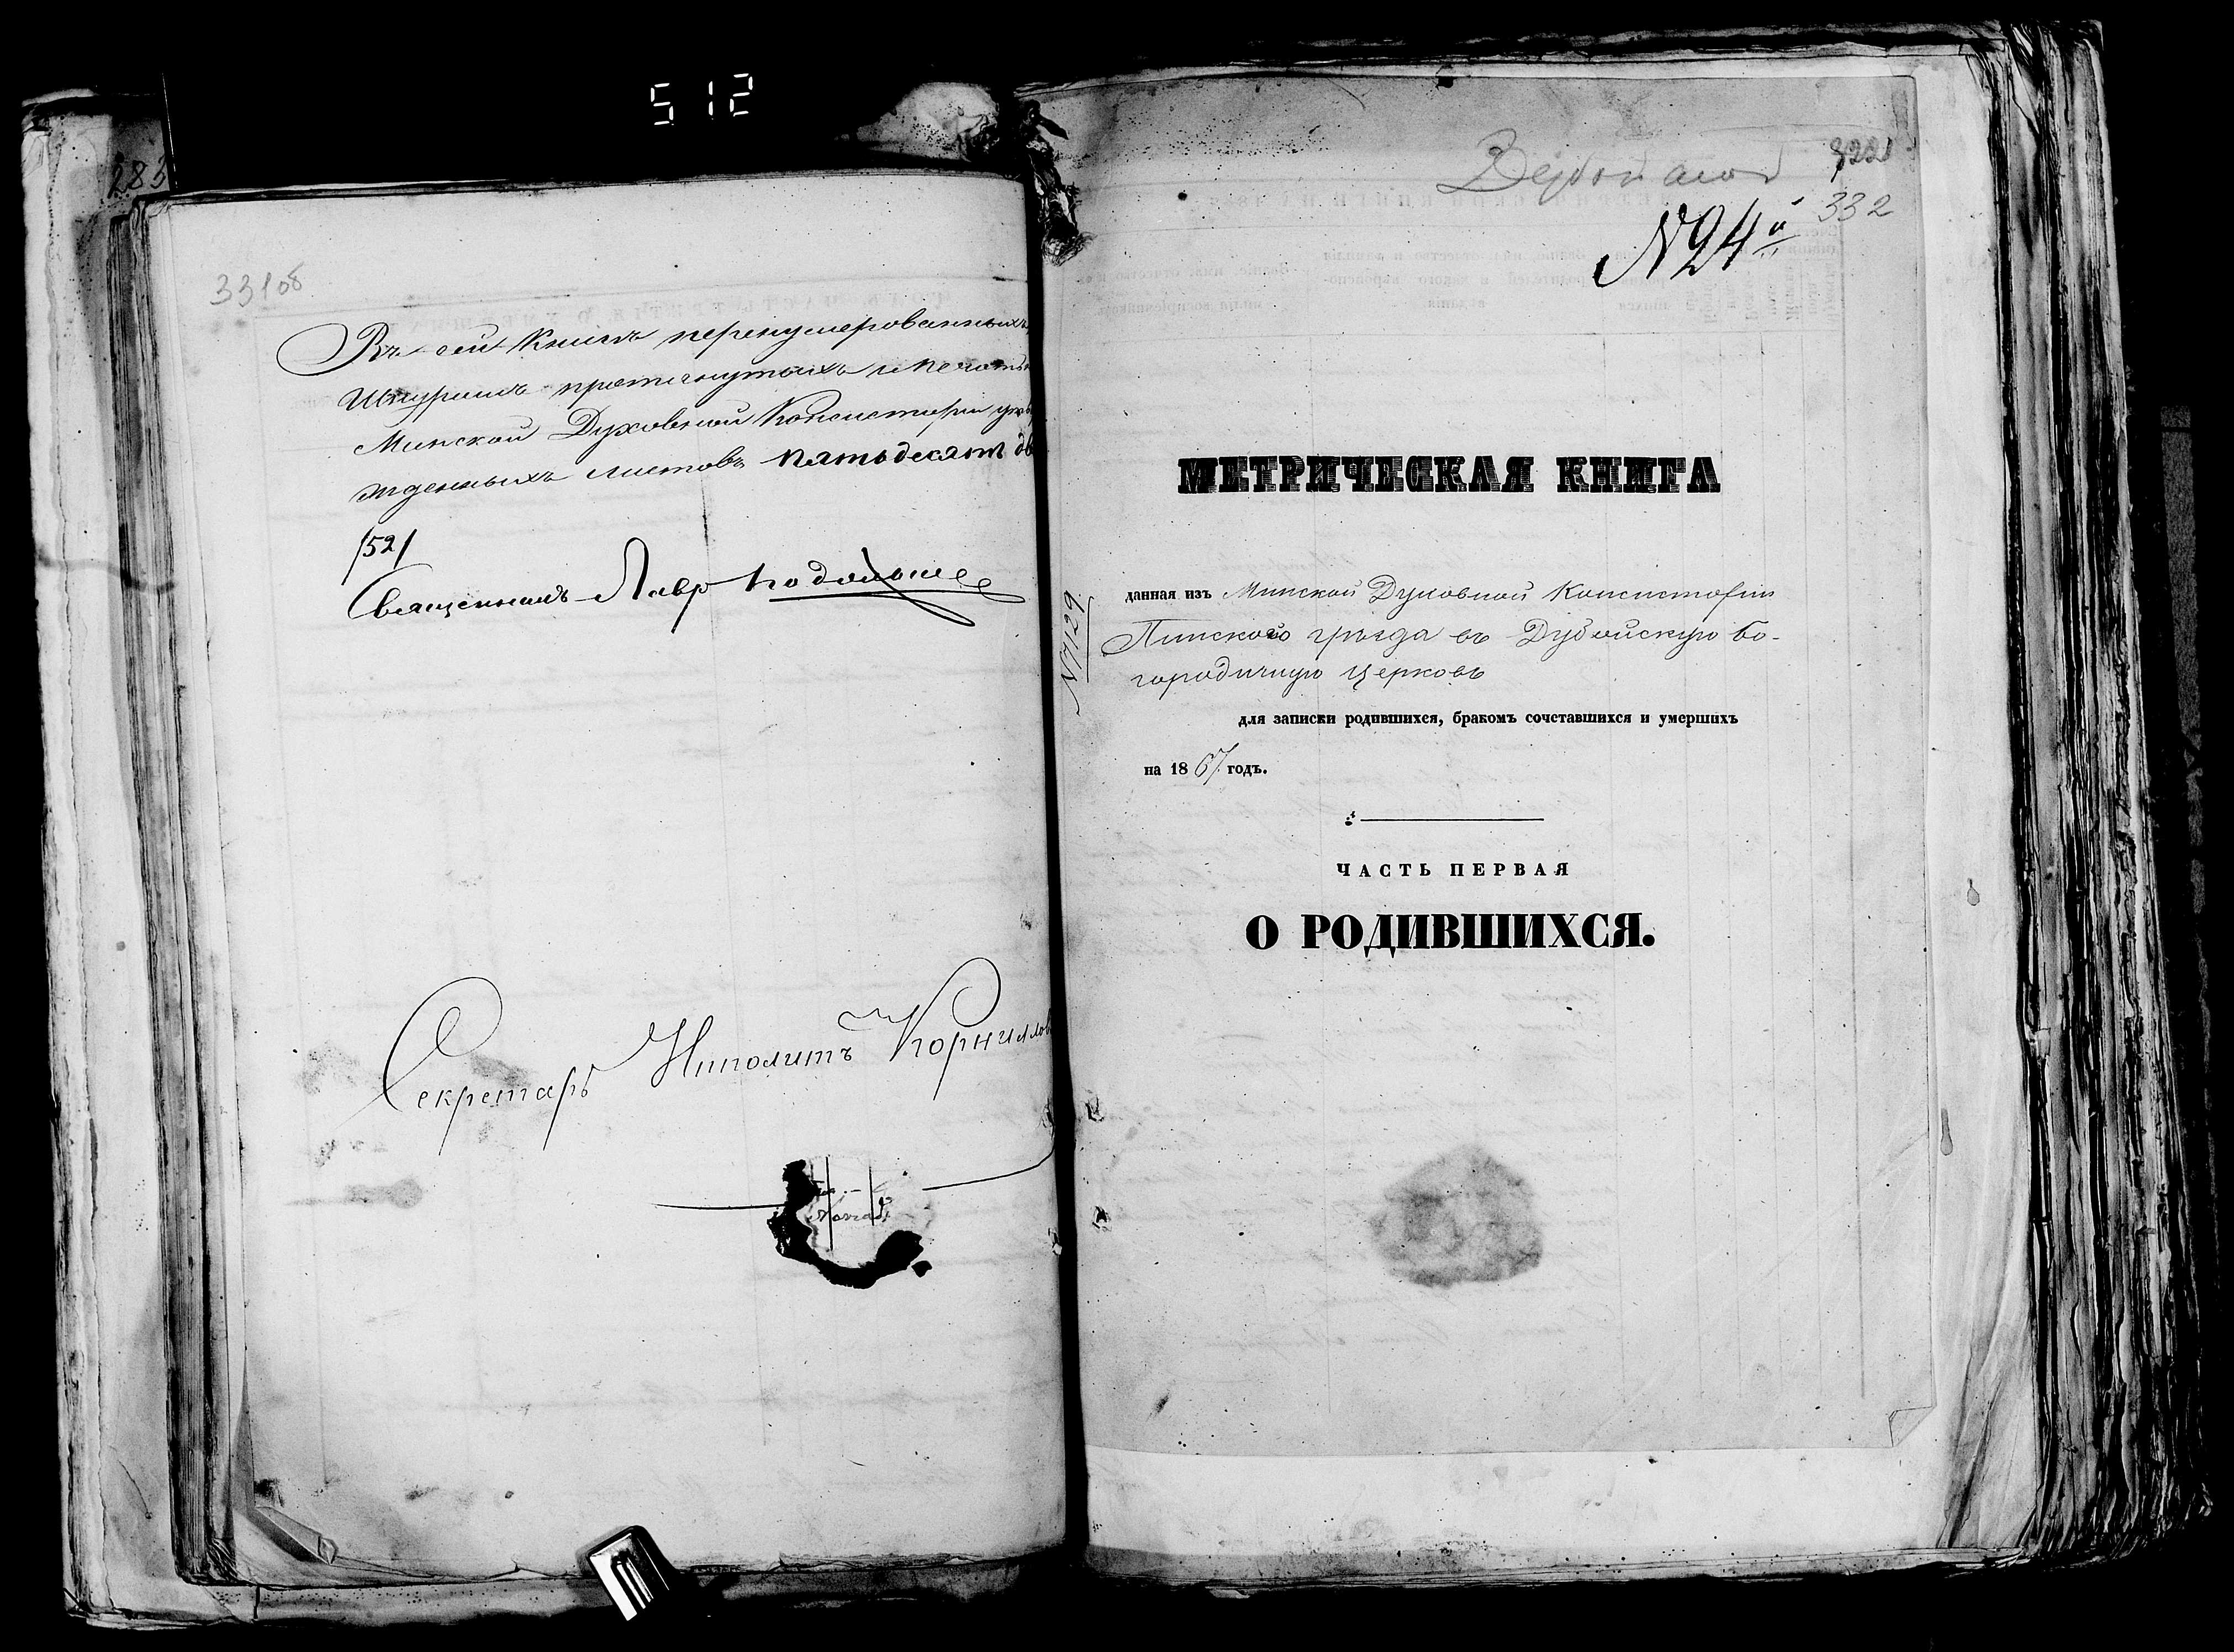 512
283
331 об
Въ сей Книгѣ перенумерованныхъ
Шнуромъ протянутыхъ и печатью
Минской Духовной Консисторіи утвер
жденныхъ листовъ пятьдесятъ дв
/52/
Священникъ Лавръ
Секретарь Ипполитъ Корнилов
332
N24й
МЕТРИЧЕСКАЯ КНИГА
N7129
данная изъ Минской Духовной Консисторіи
Пинского уѣзда въ Дубойскую Бо-
городичную церковь
для записки родившихся, бракомъ сочетавшихся и умершихъ
на 1867 годъ.
ЧАСТЬ ПЕРВАЯ
О РОДИВШИХСЯ.